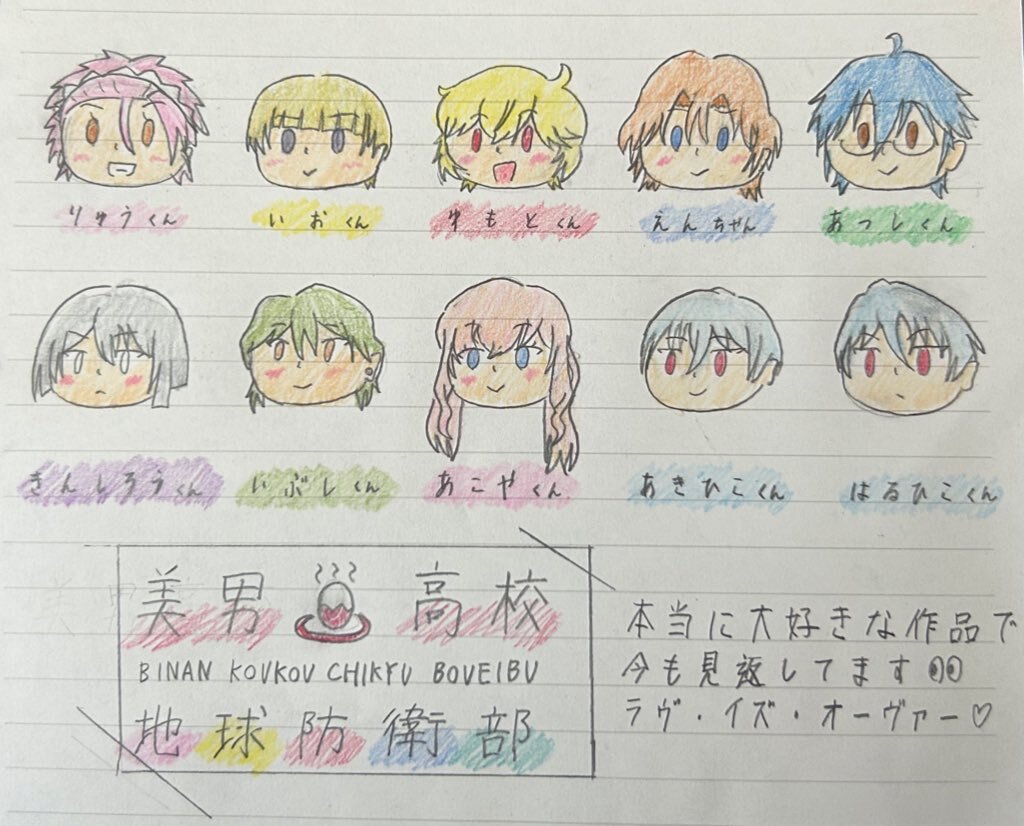 りゅうくん いおくん ゆもとくん えんちゃん あつしくん
きんしろうくん いぶしくん あこやくん あきひこくん はるひこくん
美男 高校
BINAN KOUKOU CHIKYU BOUEIBU
地球防衛部
本当に大好きな作品で
今も見返してます
ラヴ・イズ・オーヴァー♡